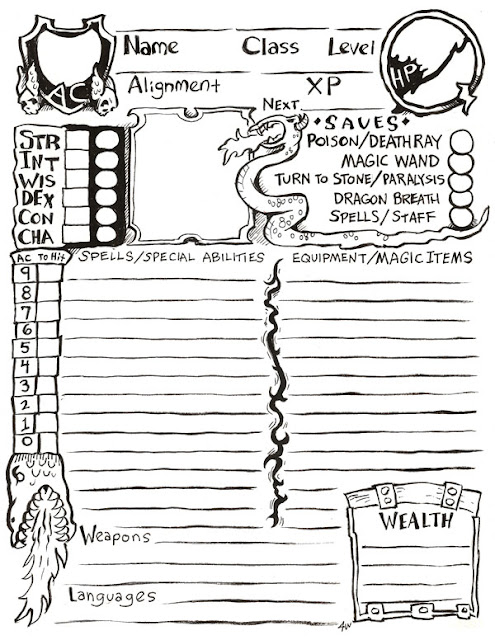 Name Class Level
AC
HP
Alignment XP
Next
• SAVES •
POISON/DEATH RAY
MAGIC WAND
TURN TO STONE/PARALYSIS
DRAGON BREATH
SPELLS/STAFF
STR
INT
WIS
DEX
CON
CHA
AC To Hit
SPELLS/SPECIAL ABILITIES
EQUIPMENT/MAGIC ITEMS
9
8
7
6
5
4
3
2
1
0
WEALTH
Weapons
Languages